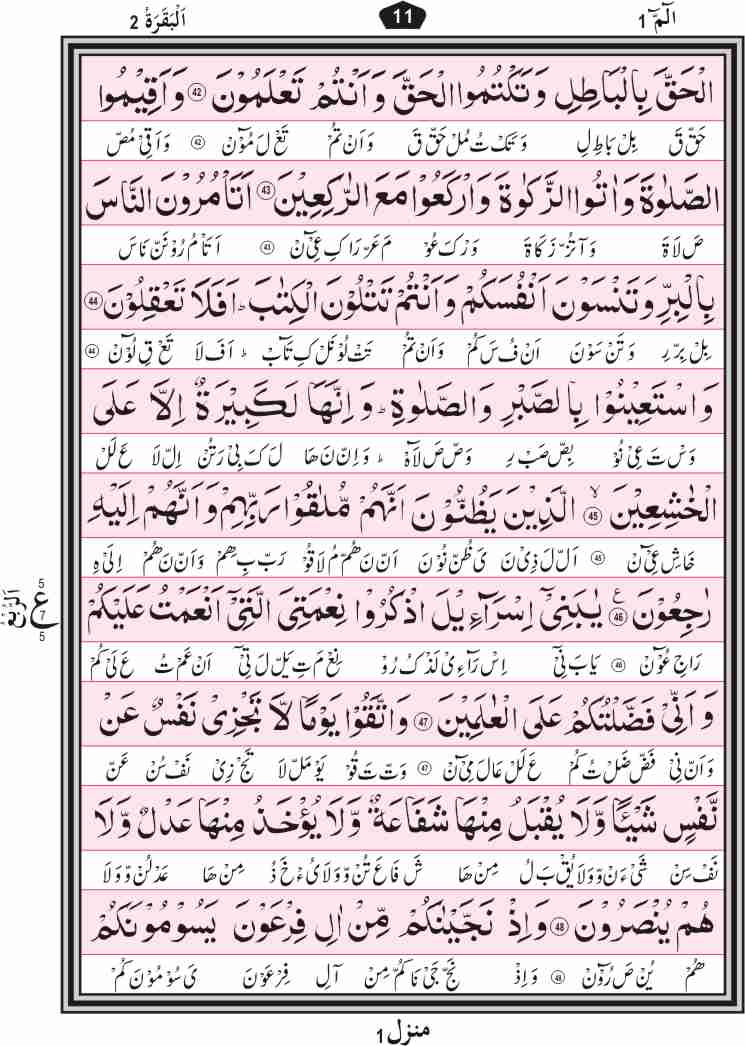 الٓمّٓ 1
11
اَلْبَقَرَةُ 2
الْحَقَّ بِالْبَاطِلِ وَتَكْتُمُوا الْحَقَّ وَاَنْتُمْ تَعْلَمُوْنَ ﴿42﴾ وَاَقِيْمُوا
حَقّ قَ بِلْ بَاطِ لِ وَ تَكْ تُ مُلْ حَقّ قَ وَ اَنْ تُمْ تَعْ لَ مُوْٓنْ ﴿42﴾ وَ اَقِىْ مُصّ
الصَّلٰوةَ وَاٰتُوا الزَّكٰوةَ وَارْكَعُوْا مَعَ الرّٰكِعِيْنَ ﴿43﴾ اَتَاْمُرُوْنَ النَّاسَ
صَ لَاةَ وَ آ تُزْ زَ كَاةَ وَرْ كَ عُوْ مَ عَرّ رَا كِ عِىْٓ نْ ﴿43﴾ اَ تَاْ مُ رُوْ نَنّ نَاسَ
بِالْبِرِّ وَتَنْسَوْنَ اَنْفُسَكُمْ وَاَنْتُمْ تَتْلُوْنَ الْكِتٰبَ ؕ اَفَلَا تَعْقِلُوْنَ ﴿44﴾
بِلْ بِرّ رِ وَ تَنْ سَوْنَ اَنْ فُ سَ كُمْ وَ اَنْ تُمْ تَتْ لُوْ نَلْ كِ تَآبْ ؕ اَفَ لَا تَعْ قِ لُوْٓنْ ﴿44﴾
وَاسْتَعِيْنُوْا بِالصَّبْرِ وَالصَّلٰوةِ ؕ وَاِنَّهَا لَكَبِيْرَةٌ اِلَّا عَلَى
وَسْ تَ عِىْ نُوْ بِصّ صَبْ رِ وَصّ صَ لَاهْ ؕ وَ اِنّ نَ هَا لَ كَ بِىْ رَ تُنْ اِلّ لَا عَ لَلْ
الْخٰشِعِيْنَ ﴿45﴾ۙ الَّذِيْنَ يَظُنُّوْنَ اَنَّهُمْ مُّلٰقُوْا رَبِّهِمْ وَاَنَّهُمْ اِلَيْهِ
خَاشِ عِىْٓ نْ ﴿45﴾ اَلّ لَ ذِىْ نَ ىَ ظُنّ نُوْنَ اَنّ نَ هُمْ مُ لَا قُوْ رَبّ بِ هِمْ وَ اَنّ نَ هُمْ اِلَىْ هِ
رٰجِعُوْنَ ﴿46﴾ؑ يٰبَنِيْٓ اِسْرَآءِيْلَ اذْكُرُوْا نِعْمَتِيَ الَّتِيْٓ اَنْعَمْتُ عَلَيْكُمْ
رَاجِ عُوْٓنْ ﴿46﴾ يَابَ نِىْٓ اِسْ رَآءِىْ لَذْ كُ رُوْ نِعْ مَ تِ يَلّ لَ تِىْٓ اَنْ عَمْ تُ عَ لَىْ كُمْ
وَاَنِّيْ فَضَّلْتُكُمْ عَلَى الْعٰلَمِيْنَ ﴿47﴾ وَاتَّقُوْا يَوْمًا لَّا تَجْزِيْ نَفْسٌ عَنْ
وَ اَنّ نِىْ فَضّ ضَلْ تُ كُمْ عَ لَلْ عَالَ مِىْٓ نْ ﴿47﴾ وَتّ تَ قُوْ يَوْ مَلّ لَا تَجْ زِىْ نَفْ سُنْ عَنّ
نَّفْسٍ شَيْـًٔا وَّلَا يُقْبَلُ مِنْهَا شَفَاعَةٌ وَّلَا يُؤْخَذُ مِنْهَا عَدْلٌ وَّلَا
نَفْ سِنْ شَىْ ءَنْ وَّ وَلَا يُقْ بَ لُ مِنْ هَا شَ فَا عَ تُنْ وَّ وَلَا يُ ءْ خَ ذُ مِنْ هَا عَدْ لُنْ وَّ وَ لَا
هُمْ يُنْصَرُوْنَ ﴿48﴾ وَاِذْ نَجَّيْنٰكُمْ مِّنْ اٰلِ فِرْعَوْنَ يَسُوْمُوْنَكُمْ
هُمْ يُنْ صَ رُوْٓنْ ﴿48﴾ وَ اِذْ نَجّ جَىْ نَا كُمّ مِنْ آلِ فِرْ عَوْنَ ىَ سُوْ مُوْنَ كُمْ
5
ع
7
5
اَلرُّبْعُ
منزل 1